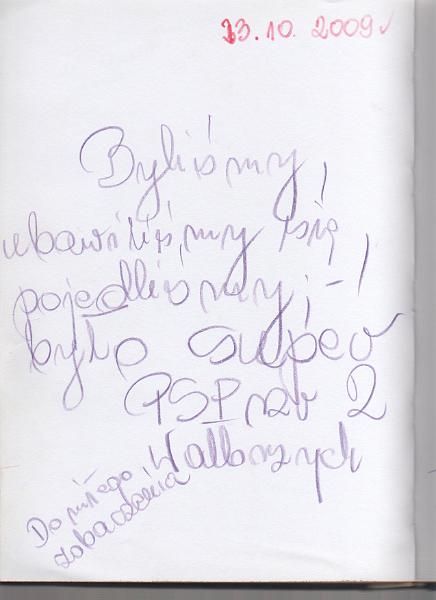 13.10.2009r
Byliśmy,
ubawiliśmy się
pojedliśmy, -!
było super
PSP nr 2
Wałbrzych
Do miłego
zobaczenia